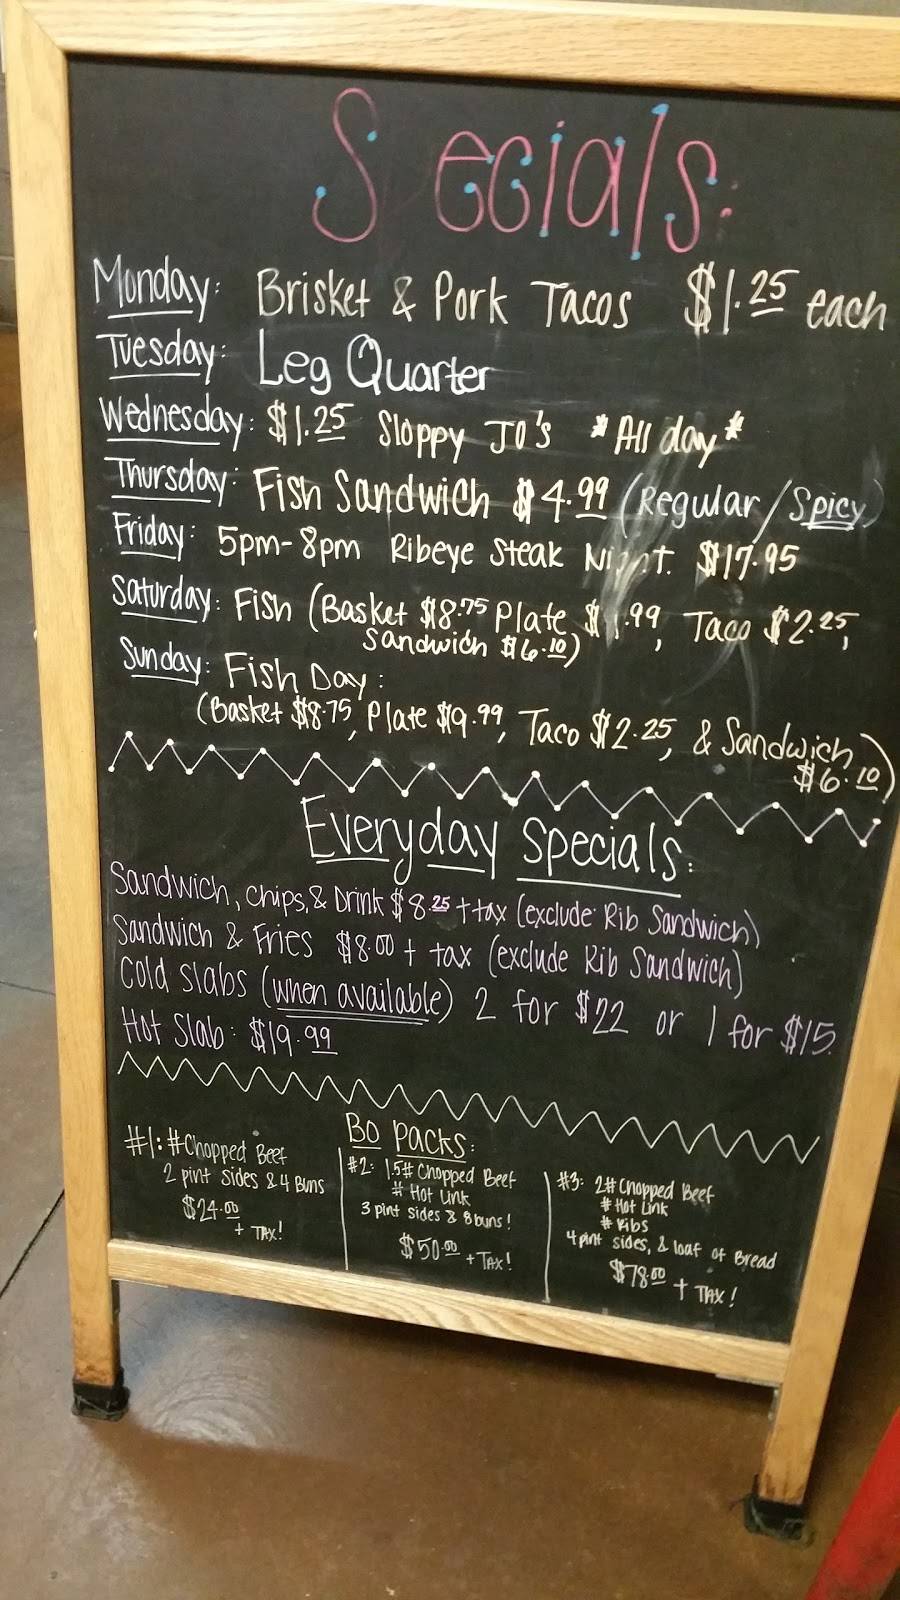 Specials:
Monday: Brisket & Pork Tacos $1.25 each
Tuesday: Leg Quarter
Wednesday: $1.25 Sloppy JO's *All day*
Thursday: Fish Sandwich $4.99 (Regular/Spicy)
Friday: 5pm-8pm Ribeye Steak Night. $17.95
Saturday: Fish (Basket $8.75 Plate $ .99, Taco $2.25,
Sandwich $6.10)
Sunday: Fish Day:
(Basket $8.75, Plate $9.99, Taco $2.25, & Sandwich
$6.10)
Everyday Specials:
Sandwich, Chips, & Drink $8.25 + tax (exclude Rib Sandwich)
Sandwich & Fries $8.00 + tax (exclude Rib Sandwich)
Cold Slabs (when available) 2 for $22 or 1 for $15.
Hot Slab: $19.99
Bo Packs:
#1: # Chopped Beef
2 pint sides & 4 Buns
$24.00
+ TAX!
#2: 1.5# Chopped Beef
# Hot Link
3 pint sides & 8 buns!
$50.00 + TAX!
#3: 2# Chopped Beef
# Hot Link
# Ribs
4 pint sides, & loaf of Bread
$78.00 + TAX!